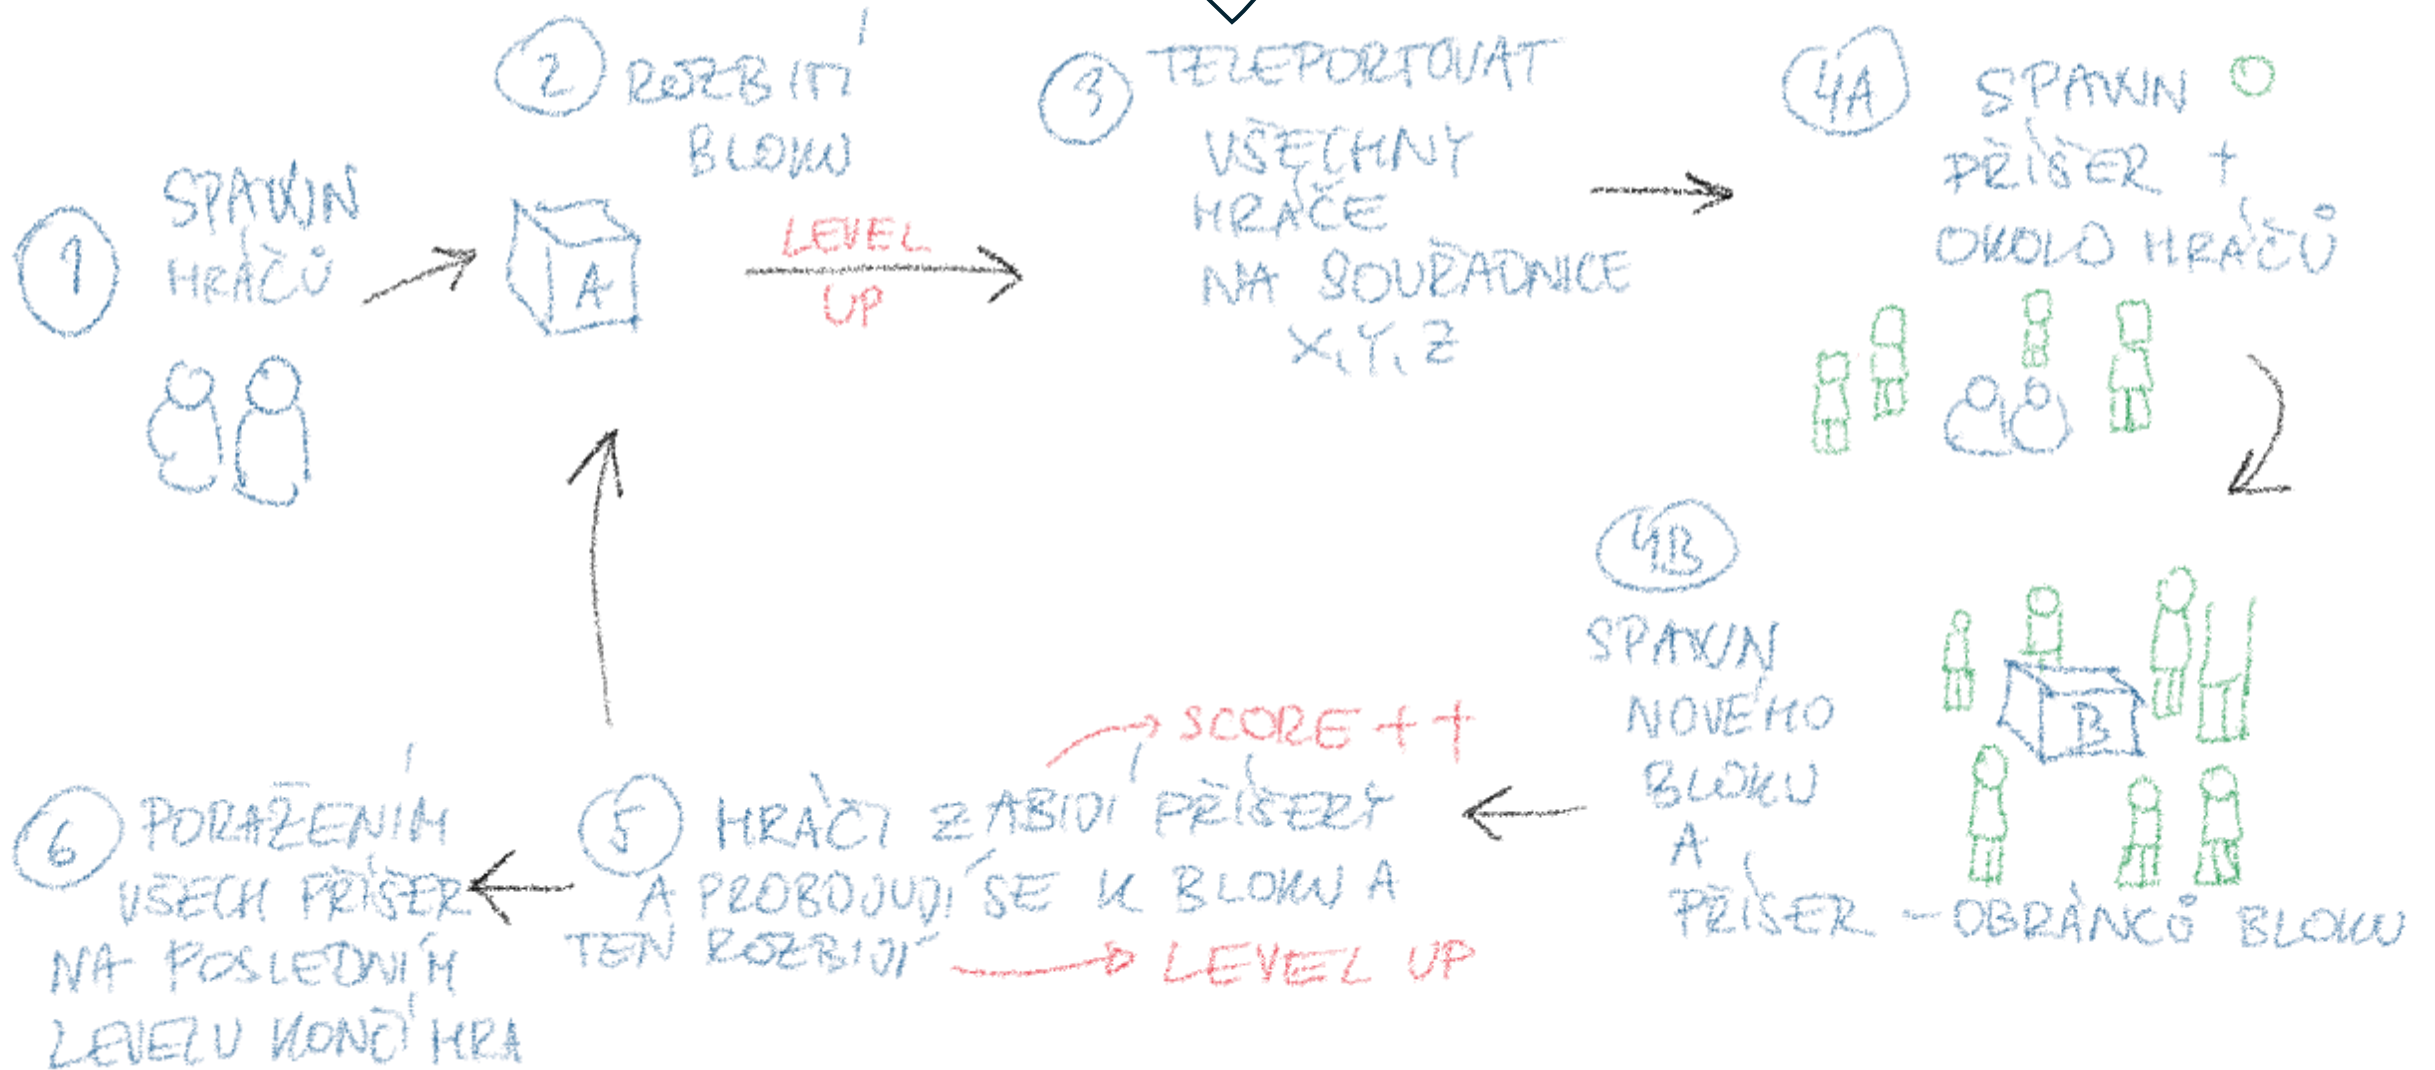 1
SPAWN
HRÁČŮ
2
ROZBITÍ
BLOKU
A
LEVEL
UP
3
TELEPORTOVAT
VŠECHNY
HRÁČE
NA SOUŘADNICE
X, Y, Z
4A
SPAWN
PŘÍŠER +
OKOLO HRÁČŮ
4B
SPAWN
NOVÉHO
BLOKU
A
PŘÍŠER - OBRÁNCŮ BLOKU
B
5
HRÁČI ZABIJÍ PŘÍŠERY
A PROBOJUJÍ SE K BLOKU A
TEN ROZBIJÍ
SCORE ++
LEVEL UP
6
PORAŽENÍM
VŠECH PŘÍŠER
NA POSLEDNÍM
LEVELU KONČÍ HRA